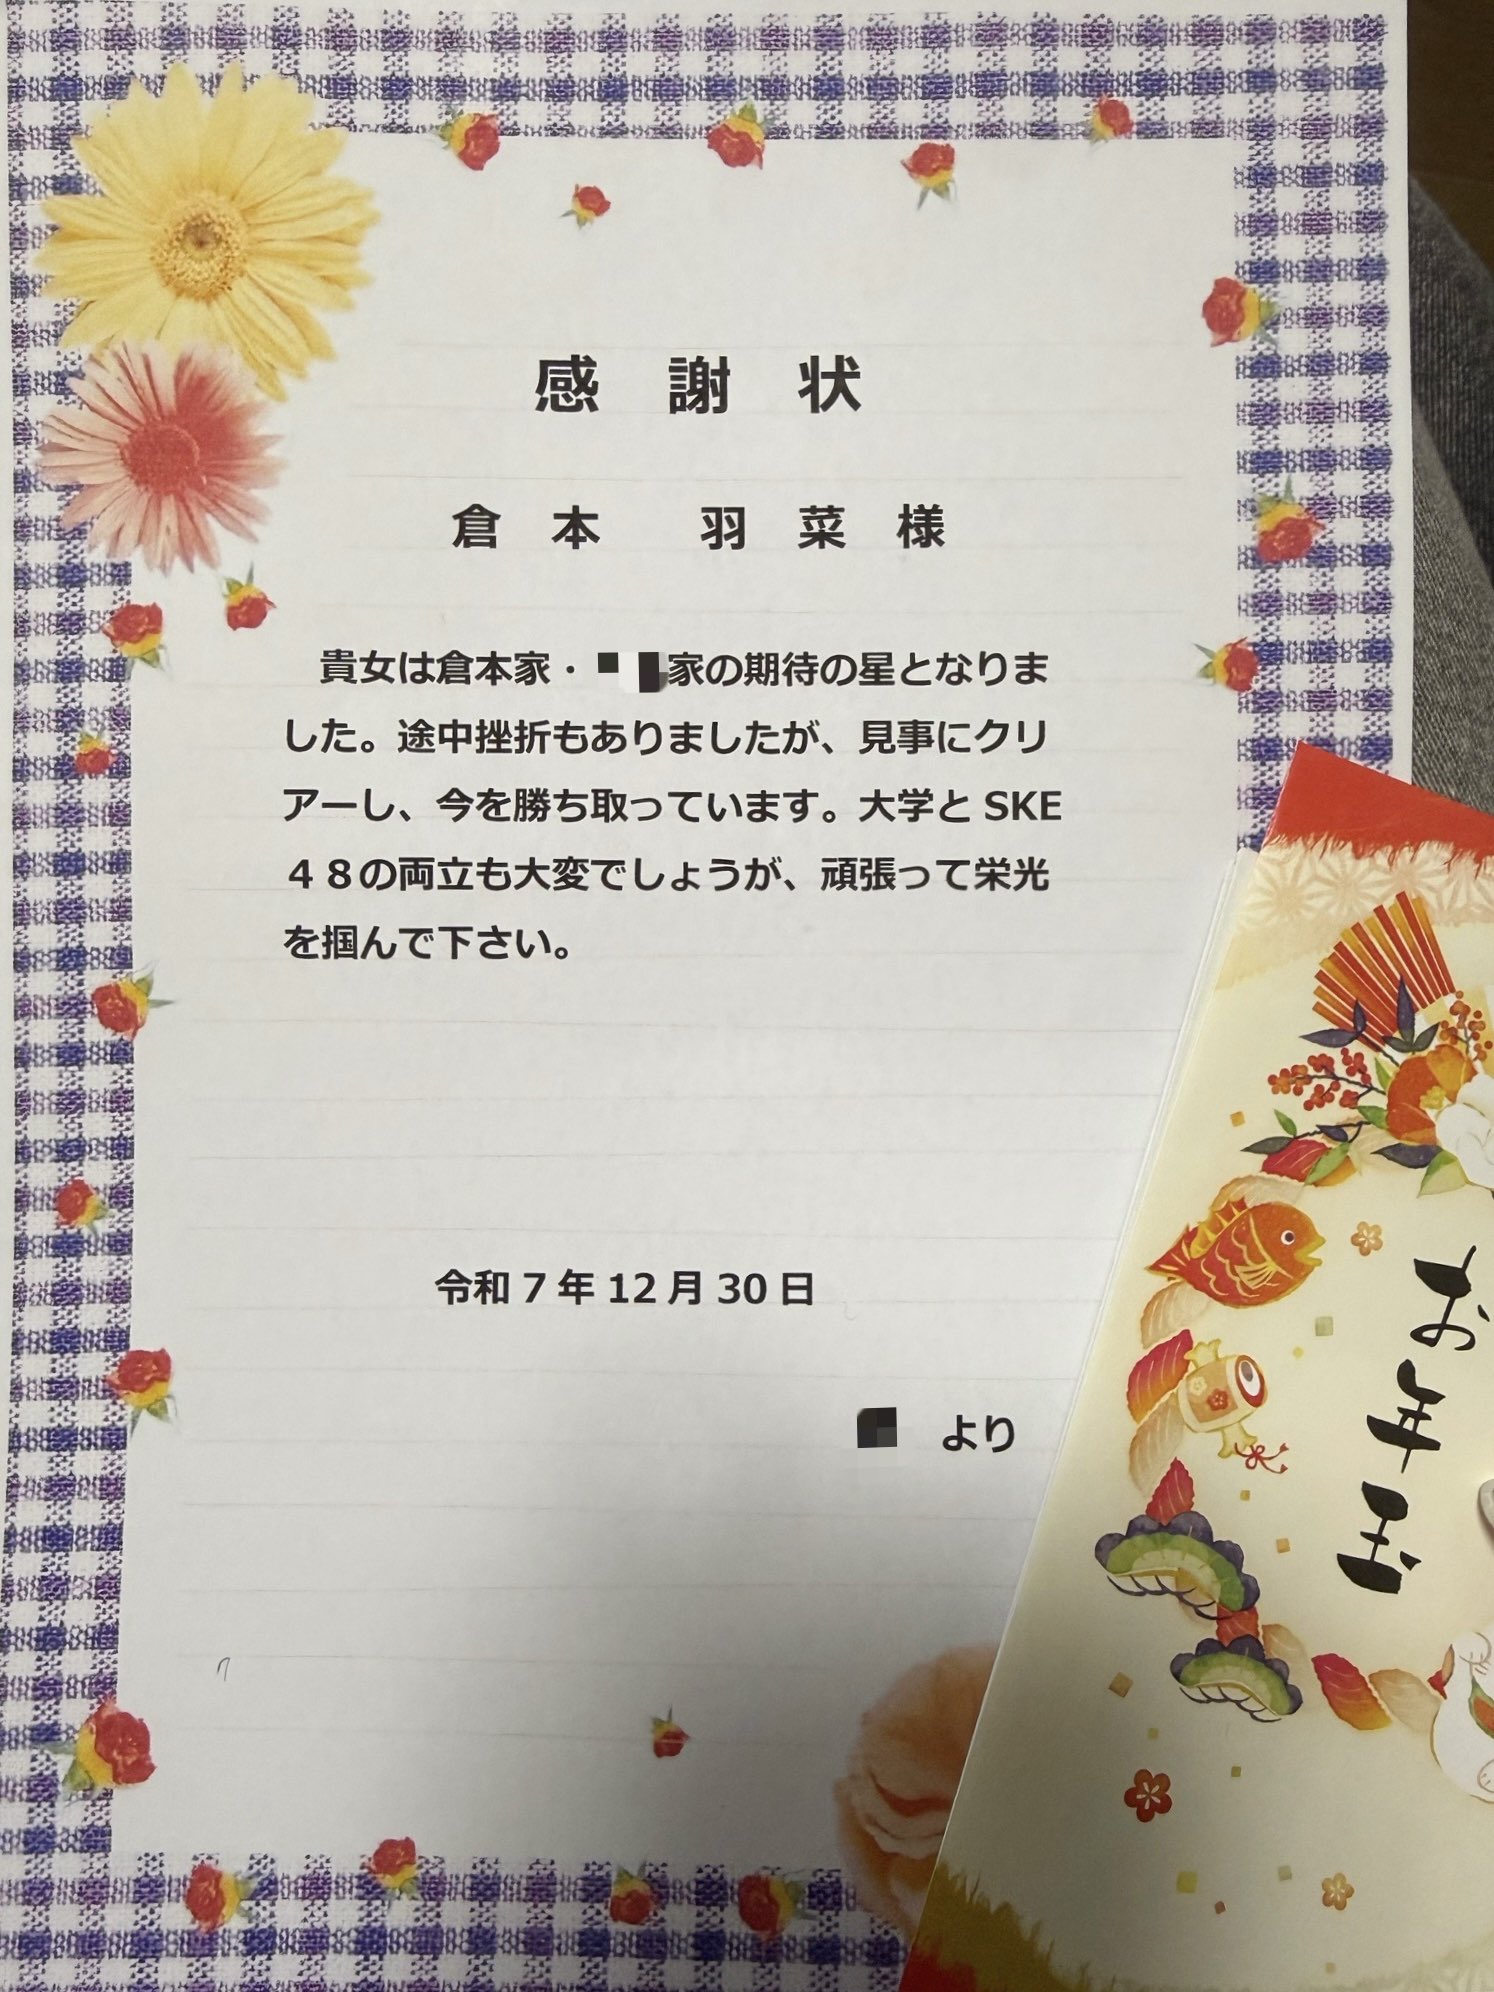 感 謝 状
倉 本　羽 菜 様
貴女は倉本家・家の期待の星となりま
した。途中挫折もありましたが、見事にクリ
アーし、今を勝ち取っています。大学と SKE
４８の両立も大変でしょうが、頑張って栄光
を掴んで下さい。
令和 7 年 12 月 30 日
より
お年玉